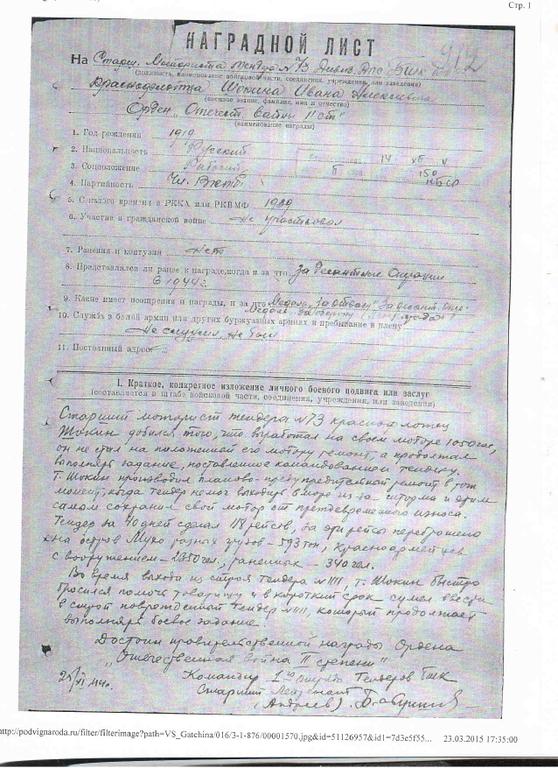 Стр. 1
НАГРАДНОЙ ЛИСТ
912
На Старш. Моториста тендера №73
(должность, наименование войсковой части, соединения, учреждения, или заведения)
Краснофлотца Шокина Ивана Алексеевича
(воинское звание, фамилия, имя и отчество)
Орден "Отечеств. войны II ст"
(наименование награды)
1. Год рождения 1919
2. Национальность Русский
3. Соцположение Рабочий
4. Партийность Чл. ВЛКСМ
5. С какого времени в РККА или РКВМФ 1939
6. Участие в гражданской войне не участвовал
7. Ранения и контузии нет
8. Представлялся ли ранее к награде, когда и за что За десантные операции
в 1944 г.
9. Какие имеет поощрения и награды, и за что
10. Служба в белой армии или других буржуазных армиях и пребывание в плену
Не служил, не был
11. Постоянный адрес
I. Краткое, конкретное изложение личного боевого подвига или заслуг
(составляется в штабе войсковой части, соединения, учреждения, или заведения)
Старший моторист тендера №73 краснофлотец
Шокин добился того, что выработал на своем моторе 1050 час,
он не стал на положенный его мотору ремонт, а продолжал
выполнять задание, поставленное командованием тендеру.
Т. Шокин производил планово-предупредительный ремонт в тот
момент, когда тендер не мог выходить в море из-за шторма и этим
самым сохранил свой мотор от преждевременного износа.
Тендер за 40 дней сделал 118 рейсов, за эти рейсы переброшено
на остров Мухо разных грузов - 593 тон, красноармейцев
с вооружением - 2350 чел., раненых - 340 чел.
Во время выхода из строя тендера № т. Шокин быстро
бросился помочь товарищу и в короткий срок сумел ввести
в строй поврежденный тендер № который продолжает
выполнять боевое задание.
Достоин правительственной награды Ордена
"Отечественная война II степени"
Командир 1го отряда тендеров
Старший Лейтенант
(Андреев)
http://podvignaroda.ru/filter/filterimage?path=VS_Gatchina/016/3-1-876/00001570.jpg&id=51126957&id1=7d3e5f55... 23.03.2015 17:35:00